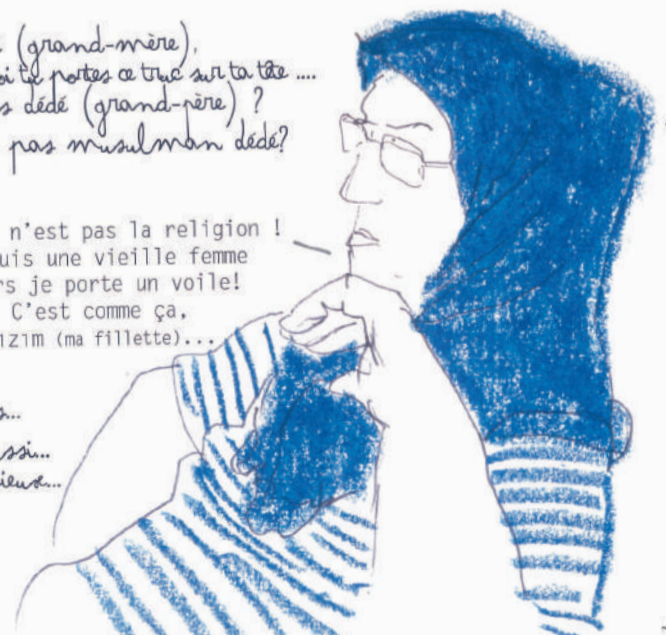 (grand-mère),
tu portes ce truc sur ta tête ....
dédé (grand-père) ?
pas musulman dédé?
n'est pas la religion !
uis une vieille femme
rs je porte un voile!
C'est comme ça,
ızım (ma fillette)...